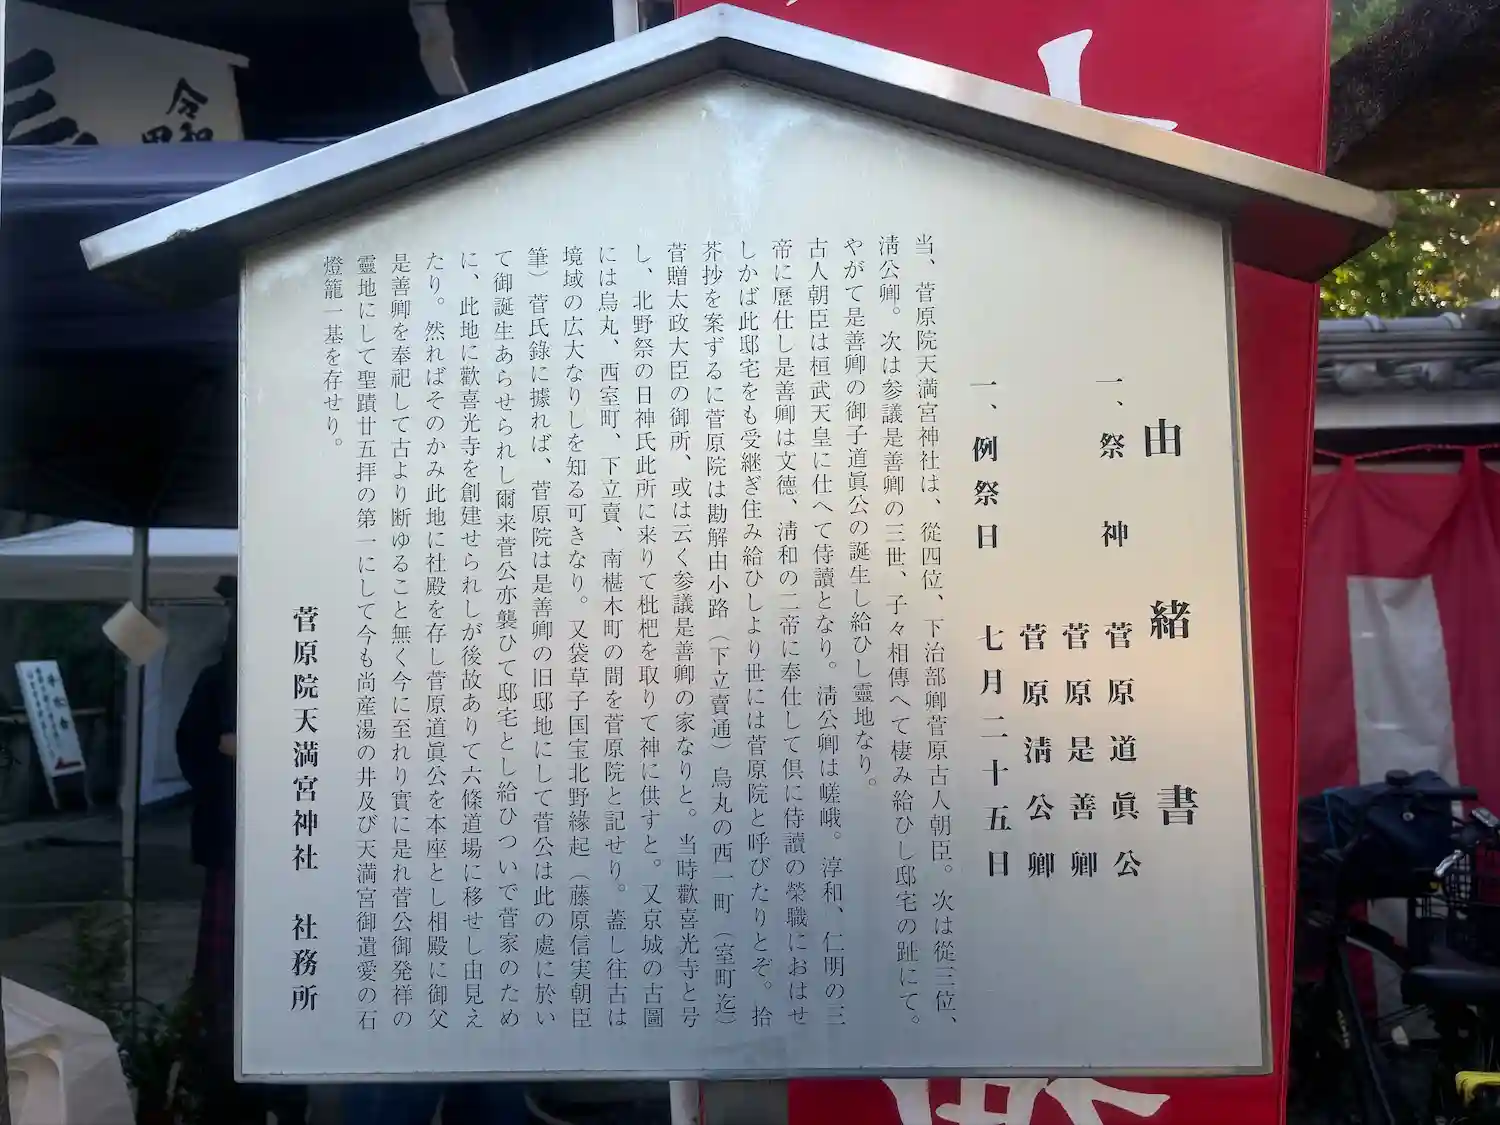 由緒書
一、祭神 菅原道眞公
菅原是善卿
菅原淸公卿
一、例祭日 七月二十五日
当、菅原院天満宮神社は、從四位、下治部卿菅原古人朝臣。次は從三位、
淸公卿。次は参議是善卿の三世、子々相傳へて棲み給ひし邸宅の趾にて。
やがて是善卿の御子道眞公の誕生し給ひし靈地なり。
古人朝臣は桓武天皇に仕へて侍讀となり。淸公卿は嵯峨。淳和、仁明の三
帝に歷仕し是善卿は文德、淸和の二帝に奉仕して倶に侍讀の榮職におはせ
しかば此邸宅をも受継ぎ住み給ひしより世には菅原院と呼びたりとぞ。拾
芥抄を案ずるに菅原院は勘解由小路（下立賣通）烏丸の西一町（室町迄）
菅贈太政大臣の御所、或は云く参議是善卿の家なりと。当時歡喜光寺と号
し、北野祭の日神氏此所に来りて枇杷を取りて神に供すと。又京城の古圖
には烏丸、西室町、下立賣、南椹木町の間を菅原院と記せり。蓋し往古は
境域の広大なりしを知る可きなり。又袋草子国宝北野緣起（藤原信実朝臣
筆）菅氏錄に據れば、菅原院は是善卿の旧邸地にして菅公は此の處に於い
て御誕生あらせられし爾来菅公亦襲ひて邸宅とし給ひついで菅家のため
に、此地に歡喜光寺を創建せられしが後故ありて六條道場に移せし由見え
たり。然ればそのかみ此地に社殿を存し菅原道眞公を本座とし相殿に御父
是善卿を奉祀して古より断ゆること無く今に至れり實に是れ菅公御発祥の
靈地にして聖蹟廿五拝の第一にして今も尚産湯の井及び天満宮御遺愛の石
燈籠一基を存せり。
菅原院天満宮神社 社務所
令和